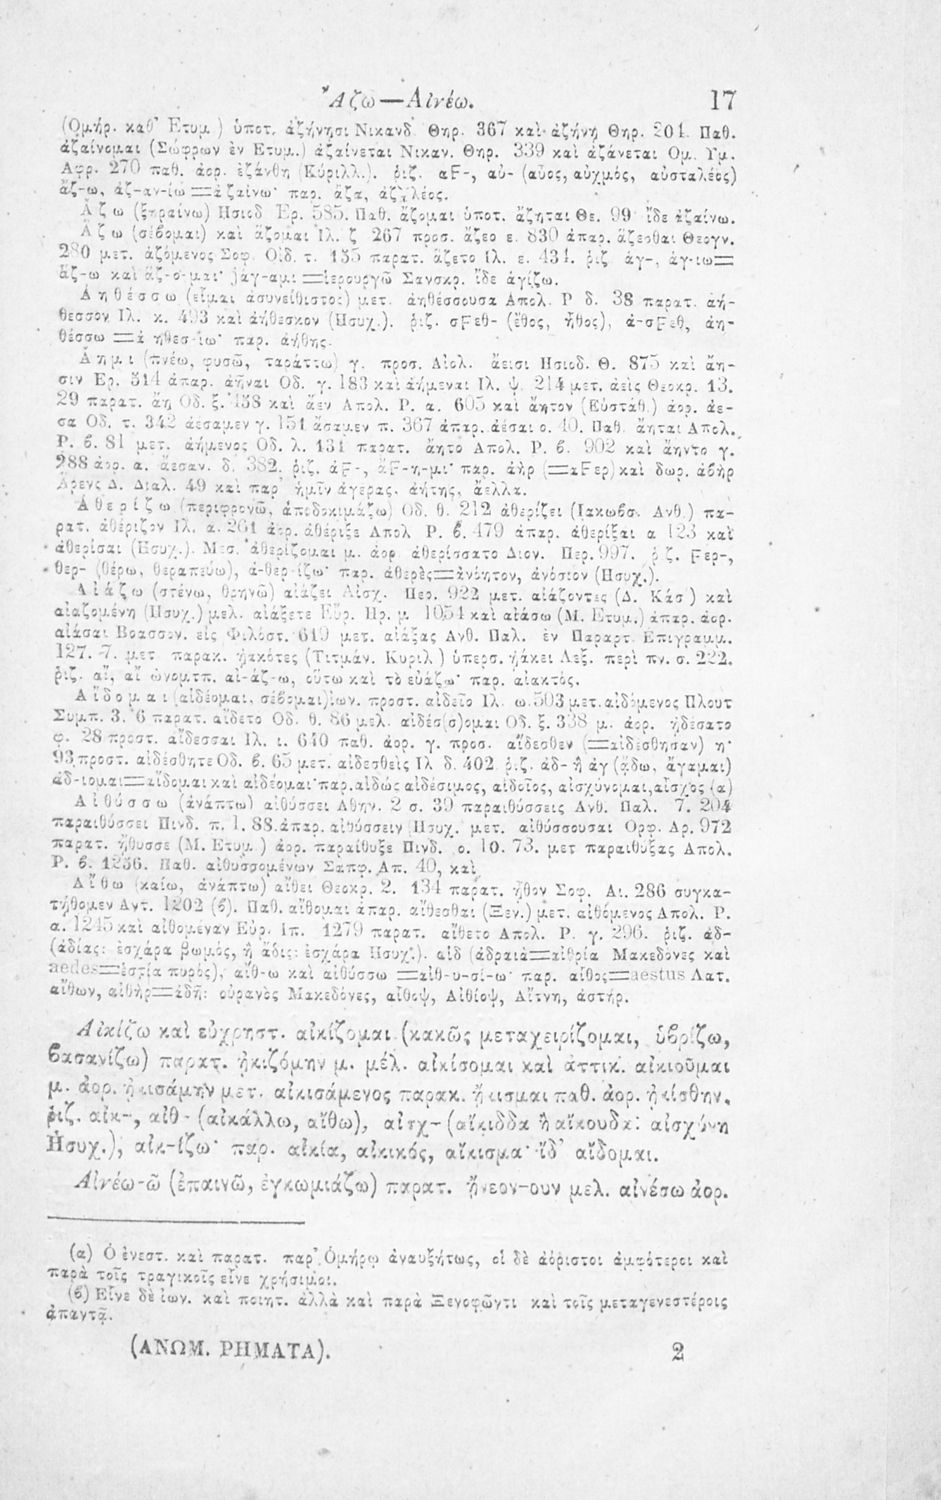 Ἄζω—Αἰνέω. 17
(Ὁμήρ. καθ' Ἐτυμ.) ὑποτ. ἀζήνησι Νικανδ. Θηρ. 367 καὶ ἀζήνῃ Θηρ. 204. Παθ.
ἀζαίνομαι (Σώφρων ἐν Ἐτυμ.) ἀζαίνεται Νικαν. Θηρ. 339 καὶ ἀζάνεται Ὁμ. Ὑμ.
Ἀφρ. 270 παθ. ἀορ. ἐζάνθη (Κύριλλ.). ῥιζ. αϜ-, αὐ- (αὖος, αὐχμός, αὐσταλέος)
ἄζ-ω, ἀζ-αν-ίω=ἀζαίνω· παρ. ἄζα, ἀζαλέος.
Ἄζω (ξηραίνω) Ησιοδ Ἐρ. 585. Παθ. ἄζομαι ὑποτ. ἄζηται Θε. 99· ἴδε ἀζαίνω.
Ἄζω (σέβομαι) καὶ ἅζομαι Ἰλ. ζ 267 προσ. ἅζεο ε. 830 ἀπαρ. ἅζεσθαι Θεογν.
280 μετ. ἁζόμενος Σοφ. Οἰδ. τ. 155 παρατ. ἅζετο Ἰλ. ε. 434. ῥιζ ἁγ-, ἁγ-ιω=
ἅζ-ω καὶ ἅζ-ο-μαι· jάγ-αμι=ἱερουργῶ Σανσκρ. ἴδε ἁγίζω.
Ἀηθέσσω (εἶμαι ἀσυνείθιστος) μετ. ἀηθέσσουσα Ἀπολ. Ρ δ. 38 παρατ. ἀή-
θεσσον Ἰλ. κ. 493 καὶ ἀήθεσκον (Ἡσυχ.). ῥιζ. σϜεθ- (ἔθος, ἦθος), ἀ-σϜεθ, ἀη-
θέσσω=ἀηθεσ-ίω· παρ. ἀήθης.
Ἄημι (πνέω, φυσῶ, ταράττω) γ. προσ. Αἰολ. ἄεισι Ησιοδ. Θ. 875 καὶ ἄη-
σιν Ἐρ. 514 ἀπαρ. ἀῆναι Ὀδ. γ. 183 καὶ ἀήμεναι Ἰλ. ψ. 214 μετ. ἀεὶς Θεοκρ. 13.
29 παρατ. ἄη Ὀδ. ξ. 458 καὶ ἄεν Ἀπολ. Ρ. α. 605 καὶ ἄητον (Εὐστάθ.) ἀορ. ἄε-
σα Ὀδ. τ. 342 ἀέσαμεν γ. 151 ἄσαμεν π. 367 ἀπαρ. ἀέσαι ο. 40. Παθ. ἄηται Ἀπολ.
Ρ. β. 81 μετ. ἀήμενος Ὀδ. λ. 131 παρατ. ἄητο Ἀπολ. Ρ. β. 902 καὶ ἄηντο γ.
288 ἀορ. α. ἄεσαν. δ. 382. ῥιζ. ἀϜ-, ἄϜ-η-μι· παρ. ἀὴρ (=αϜερ) καὶ δωρ. ἀβὴρ
Ἄρενς Δ. Διαλ. 49 καὶ παρ' ἡμῖν ἀγέρας, ἀήτης, ἄελλα.
Ἀθερίζω (περιφρονῶ, ἀποδοκιμάζω) Ὀδ. θ. 212 ἀθερίζει (Ἰακωβσ. Ἀνθ.) πα-
ρατ. ἀθέριζον Ἰλ. α. 261 ἀορ. ἀθέριξε Ἀπολ Ρ. β. 479 ἀπαρ. ἀθερίξαι α 123 καὶ
ἀθερίσαι (Ἡσυχ.). Μεσ. ἀθερίζομαι μ. ἀορ ἀθερίσσατο Διον. Περ. 997. ῥιζ. Ϝερ-,
θερ- (θέρω, θεραπεύω), ἀ-θερ-ίζω· παρ. ἀθερὲς=ἀνόητον, ἀνόσιον (Ἡσυχ.).
Αἰάζω (στένω, θρηνῶ) αἰάζει Αἰσχ. Πέρ. 922 μετ. αἰάζοντες (Δ. Κάσ.) καὶ
αἰαζομένη (Ἡσυχ.) μελ. αἰάξετε Εὐρ. Ηρ. μ. 1054 καὶ αἰάσω (Μ. Ἐτυμ.) ἀπαρ. ἀορ.
αἰάσαι Βοασσον. εἰς Φιλόστ. 619 μετ. αἰάξας Ἀνθ. Παλ. ἐν Παραρτ. Ἐπιγραμμ.
127. 7. μετ παρακ. ἠακότες (Τιτμάν. Κυριλ.) ὑπερσ. ἠάκει Λεξ. περὶ πν. σ. 222.
ῥιζ. αἴ, αἴ ὠνομτπ. αἰ-άζ-ω, οὕτω καὶ τὸ εὐάζω· παρ. αἰακτός.
Αἴδομαι (αἰδέομαι, σέβομαι) ἰων. προστ. αἰδεῖο Ἰλ. ω. 503 μετ. αἰδόμενος Πλουτ
Συμπ. 3. 6 παρατ. αἴδετο Ὀδ. θ. 86 μελ. αἰδέσ(σ)ομαι Ὀδ. ξ. 338 μ. ἀορ. ᾐδέσατο
φ. 28 προστ. αἴδεσσαι Ἰλ. ι. 640 παθ. ἀορ. γ. προσ. αἴδεσθεν (=αἰδέσθησαν) η·
93 προστ. αἰδέσθητε Ὀδ. β. 65 μετ. αἰδεσθεὶς Ἰλ δ. 402 ῥιζ. ἁδ- ἢ ἁγ (ἅδω, ἄγαμαι)
ἁδ-ιομαι=αἴδομαι καὶ αἰδέομαι· παρ. αἰδὼς αἰδέσιμος, αἰδοῖος, αἰσχύνομαι, αἶσχος (α)
Αἰθύσσω (ἀνάπτω) αἰθύσσει Ἀθην. 2 σ. 39 παραιθύσσεις Ἀνθ. Παλ. 7. 204
παραιθύσσει Πινδ. π. 1. 88. ἀπαρ. αἰθύσσειν Ἡσυχ. μετ. αἰθύσσουσαι Ὀρφ. Ἀρ. 972
παρατ. ᾔθυσσε (Μ. Ἐτυμ.) ἀορ. παραίθυξε Πινδ. ο. 10. 73. μετ παραιθύξας Ἀπολ.
Ρ. β. 1256. Παθ. αἰθυσσομένων Σαπφ. Ἀπ. 40, καὶ
Αἴθω (καίω, ἀνάπτω) αἴθει Θεοκρ. 2. 134 παρατ. ᾖθον Σοφ. Αι. 286 συγκα-
τῄθομεν Ἀντ. 1202 (β). Παθ. αἴθομαι ἀπαρ. αἴθεσθαι (Ξεν.) μετ. αἰθόμενος Ἀπολ. Ρ.
α. 1245 καὶ αἰθομέναν Εὐρ. Ἱπ. 1279 παρατ. αἴθετο Ἀπολ. Ρ. γ. 296. ῥιζ. ἀδ-
(ἀδίας: ἐσχάρα βωμός, ἢ ἄδις: ἐσχάρα Ἡσυχ.). αἰδ (ἀδραιὰ=αἰθρία Μακεδόνες καὶ
aedes=ἑστία πυρός), αἴθ-ω καὶ αἰθύσσω=αἰθ-υ-σί-ω· παρ. αἶθος=aestus Λατ.
αἴθων, αἰθὴρ=ἀδῆ: οὐρανὸς Μακεδόνες, αἶθοψ, Αἰθίοψ, Αἴτνη, ἀστήρ.
Αἰκίζω καὶ εὐχρηστ. αἰκίζομαι (κακῶς μεταχειρίζομαι, ὑβρίζω,
βασανίζω) παρατ. ᾐκιζόμην μ. μέλ. αἰκίσομαι καὶ ἀττικ. αἰκιοῦμαι
μ. ἀορ. ᾐκισάμην μετ. αἰκισάμενος παρακ. ᾔκισμαι παθ. ἀορ. ᾐκίσθην.
ῥιζ. αἰκ-, αἰθ- (αἰκάλλω, αἴθω), αἰσχ- (αἴκιδδα ἢ αἴκουδα: αἰσχύνη
Ἡσυχ.), αἰκ-ίζω· παρ. αἰκία, αἰκικός, αἴκισμα· ἴδ' αἴδομαι.
Αἰνέω-ῶ (ἐπαινῶ, ἐγκωμιάζω) παρατ. ᾔνεον-ουν μελ. αἰνέσω ἀορ.
(α) Ὁ ἐνεστ. καὶ παρατ. παρ' Ὁμήρῳ ἀναυξήτως, οἱ δὲ ἀόριστοι ἀμφότεροι καὶ
παρὰ τοῖς τραγικοῖς εἶνε χρήσιμοι.
(β) Εἶνε δὲ ἰων. καὶ ποιητ. ἀλλὰ καὶ παρὰ Ξενοφῶντι καὶ τοῖς μεταγενεστέροις
ἀπαντᾷ.
(ΑΝΩΜ. ΡΗΜΑΤΑ). 2